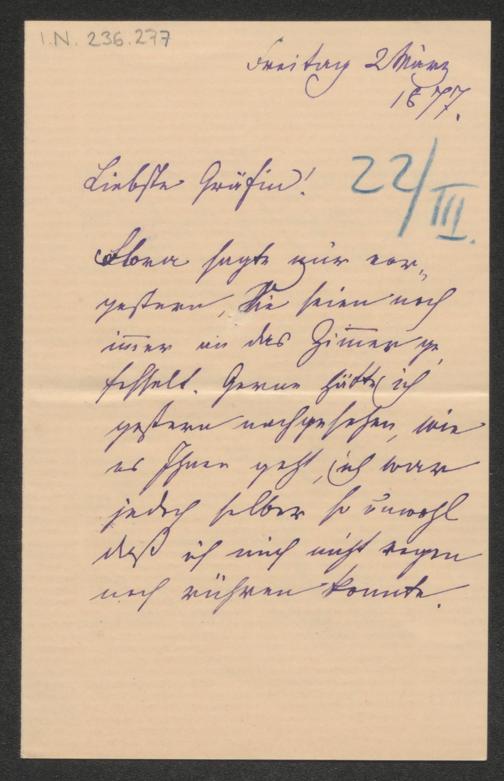 I.N. 236.277
Freitag 2 März
1877.
22/III.
Liebste Gräfin!
Flora sagte mir vor„
gestern, Sie seien noch
immer an das Zimmer ge„
fesselt. Gerne hätte ich
gestern nachgesehen, wie
es Ihnen geht, ich war
jedoch selber so unwohl
daß ich mich nicht regen
noch rühren konnte.